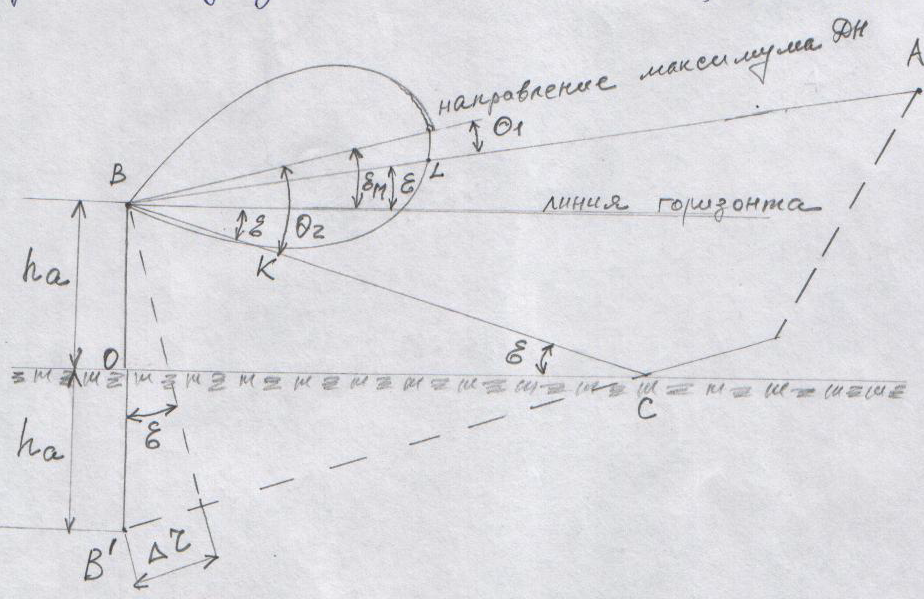 направление максимума ДН
A
θ1
B
εм
ε
L
линия горизонта
ε
θ2
K
hа
O
ε
C
ε
hа
B'
Δr